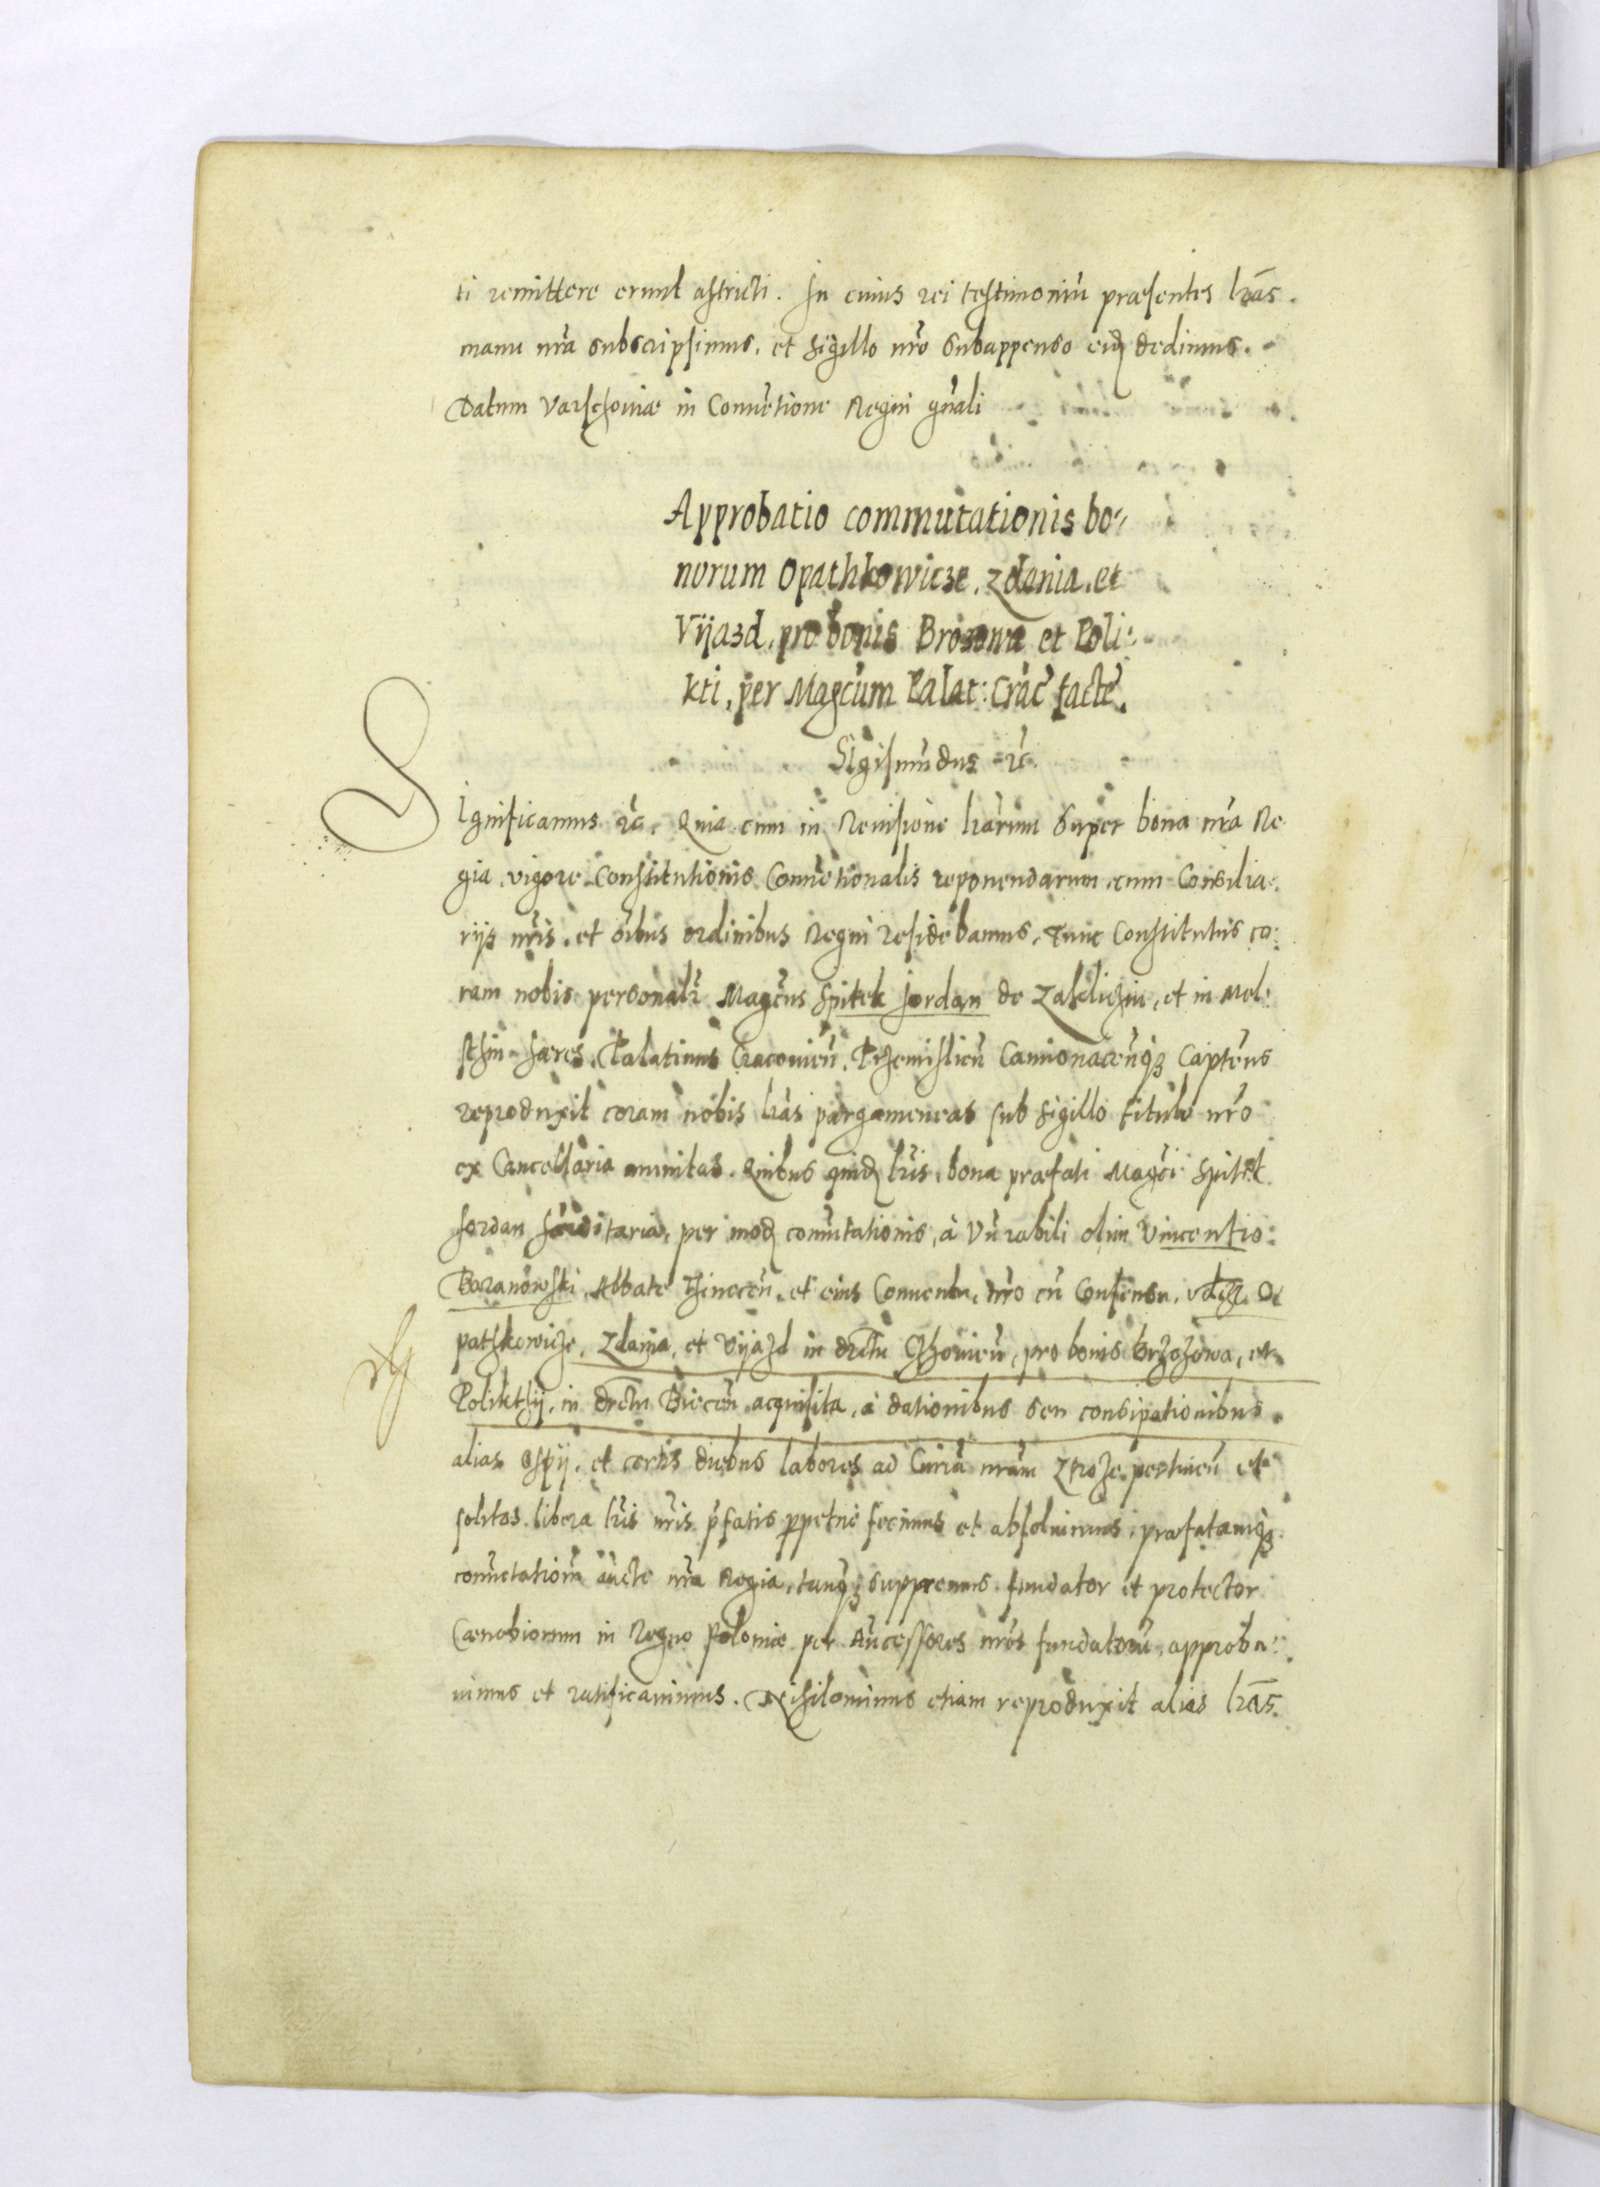 ti remittere erunt astricti. In cuius rei testimoniũ præsentes lrãs.
manu nrã subscripsimus, et sigillo nrõ subappenso eidẽ dedimus.
Datum Varschoviæ in Conuẽtione Regni gñali
Approbatio commutationis bo-
norum Opathkowicze, Zdania, et
Vijazd, pro bonis Brozowa et Poli:
kti, per Magcũm Palat: Crac̃ factẽ.
Sigismũdus ꝛc̃
Significamus ꝛc̃, Quia cum in Reuisione lrãrum super bona nrã Re
gia vigore Constitutionis Conuẽtionalis reponendarum, cum Consilia:
rijs nrĩs, et oĩbus ordinibus Regni residebamus, Tunc Constitutus co:
ram nobis personalr̃ Magcũs Spitek Jordan de Zakliczin, et in Mel:
sthin hæres, Palatinus Cracovieñ, Przemisliceñ Camionaceñqꝫ Captẽus
reproduxit coram nobis lrãs pargameneas sub sigillo titulo nrõ
ex Cancellaria munitas. Quibus quidẽ lrĩs, bona præfati Magcĩ Spitek
Jordan hæreditaria, per modũ comutationis, à Vñrabili olim Vincentio:
Baranowski, Abbate Thineceñ, et eius Conuentu, nrõ cũ Consensu, vdlꝫ O
pathkowicze, Zdania, et Vijazd in drctu Czchovieñ, pro bonis Brzozowa, et
Polikthij, in drctu Bieceñ acquisita, à dationibus seu consipationibus
alias Osijpij, et certis diebus labores ad Curiã nrãm Zthroze pertineñ et
solitas libera lrĩs nrĩs p̃fatis ꝑpetue fecimus et absoluimus, præfatamqꝫ
comutationẽ aũcte nrã Regia, tanqꝫ suppremus fundator et protector
Cænobiorum in Regno Poloniæ per Añcessores nrõs fundatorũ, approba:
uimus et ratificauimus. Nihilominus etiam reproduxit alias lrãs.